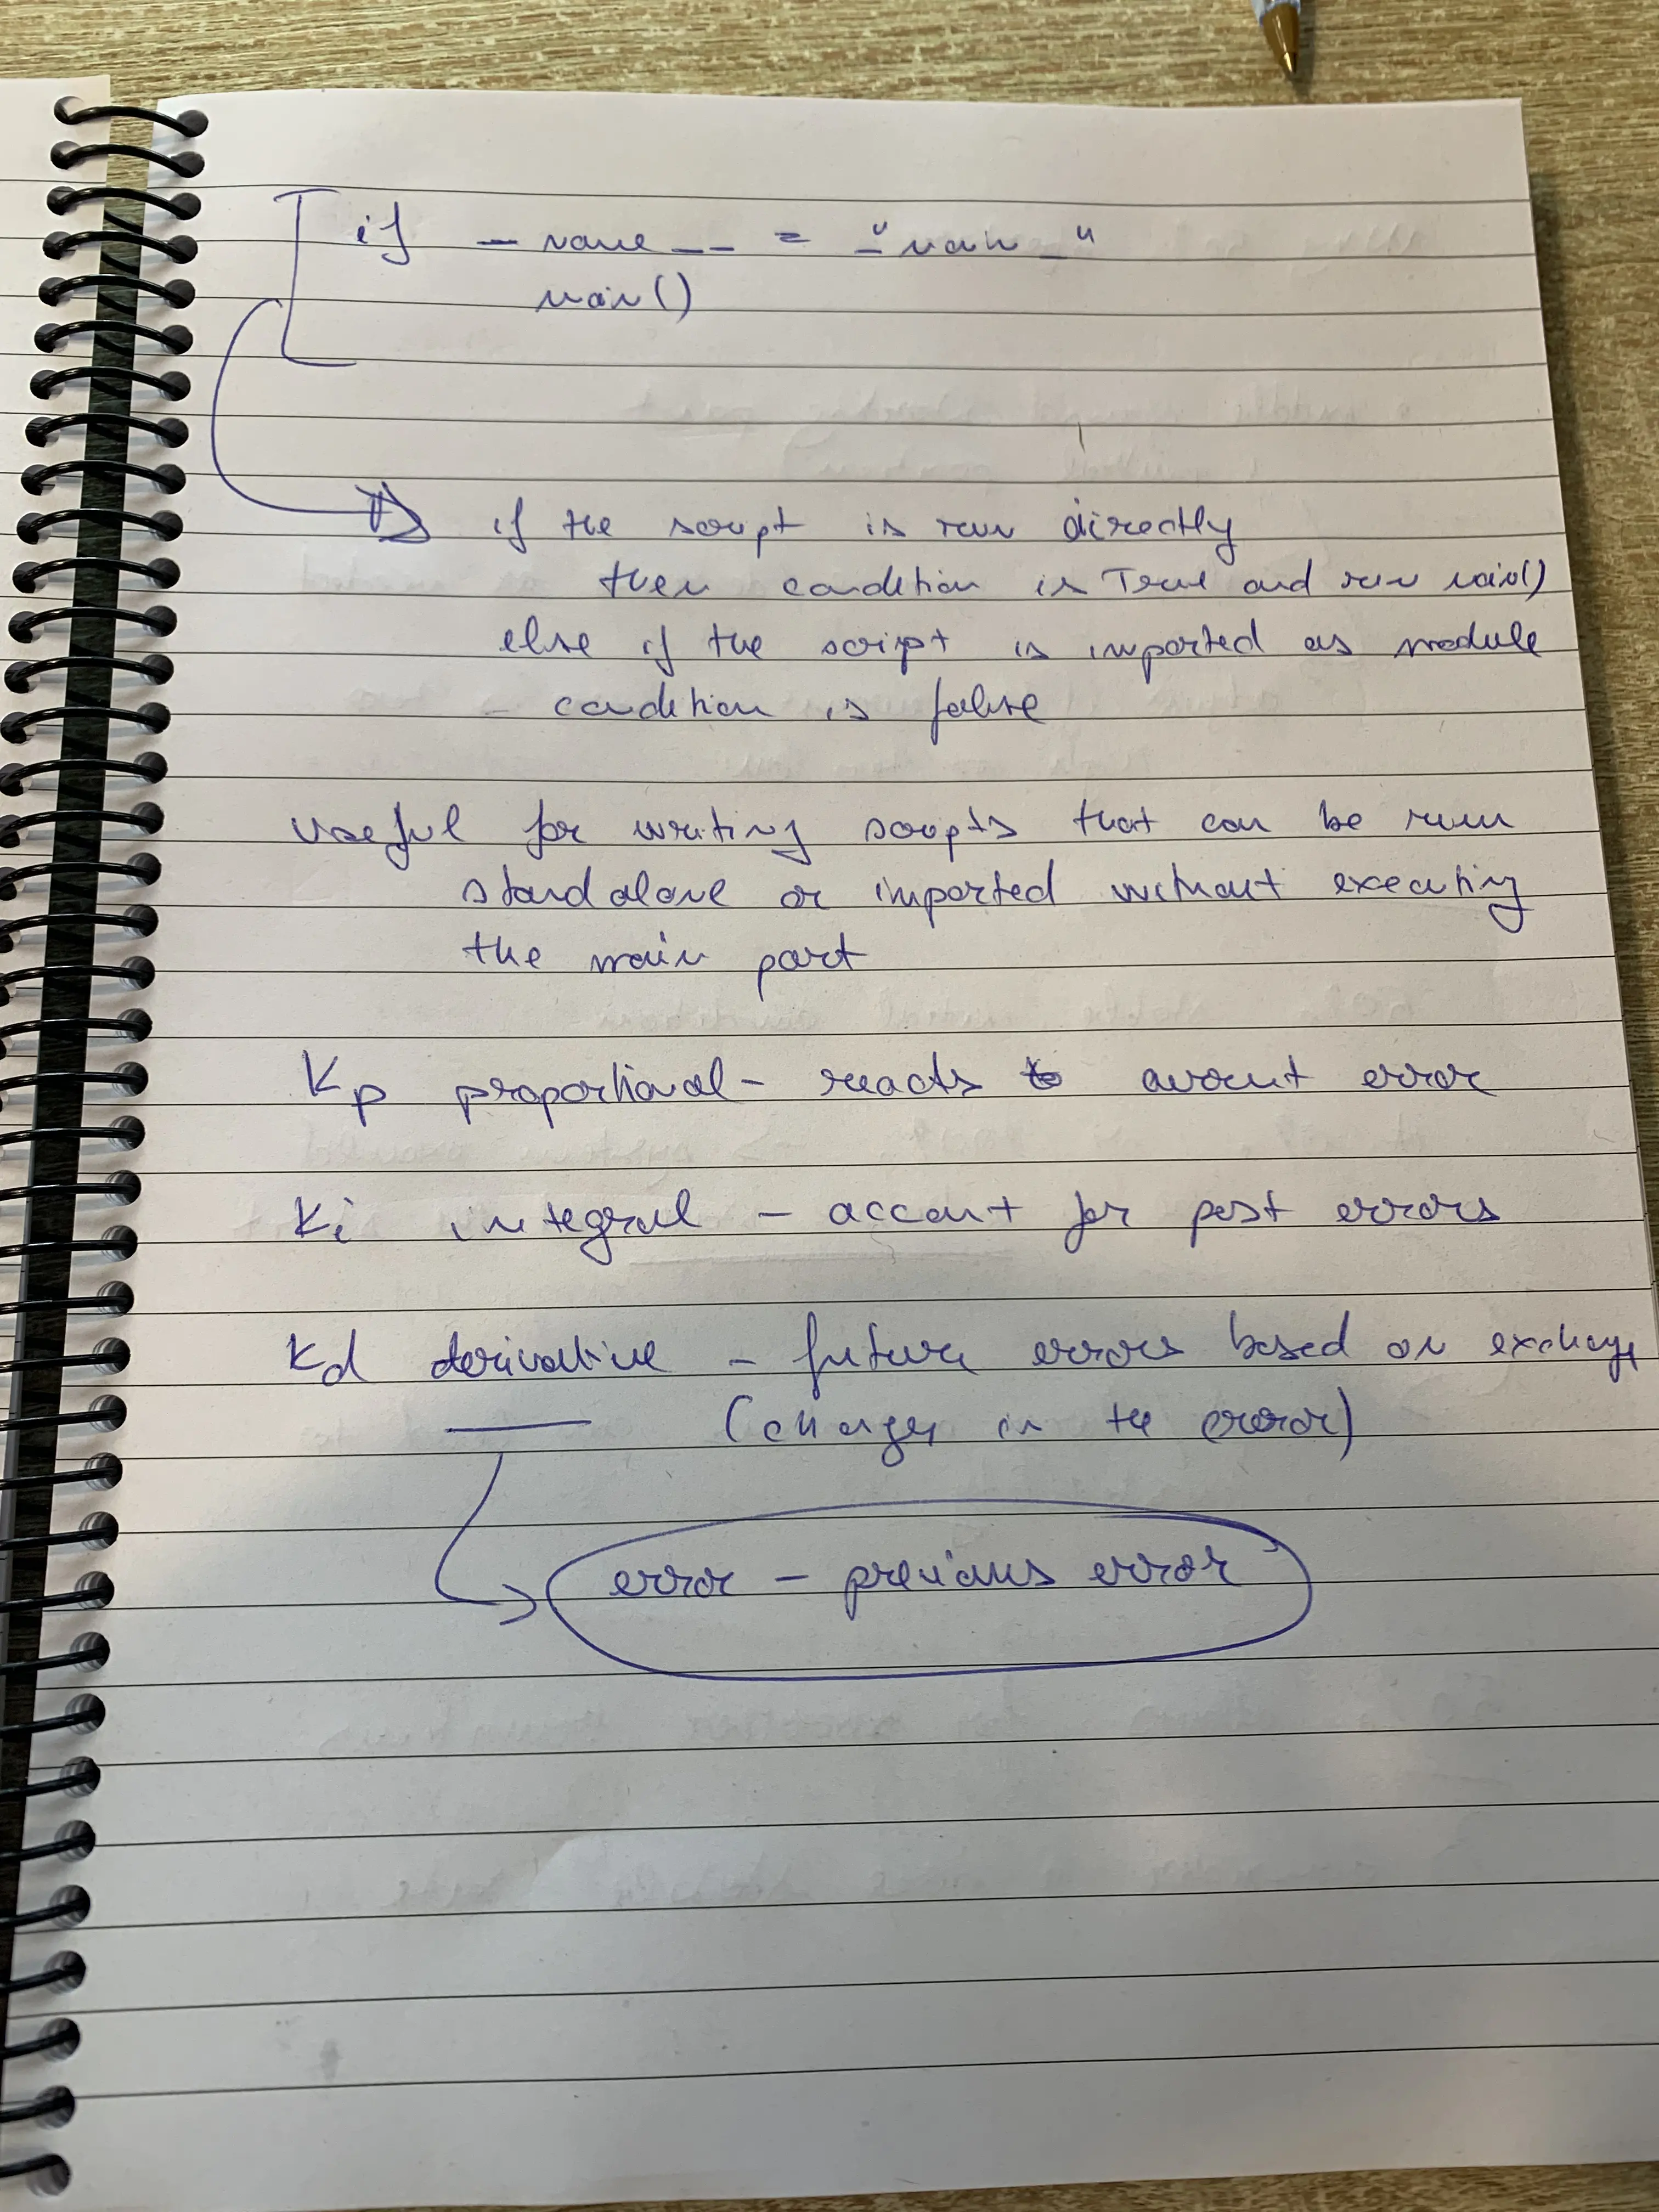 if _ name __ = "_ main _"
main()
if the script is run directly
then condition is True and run main()
else if the script is imported as module
- condition is false
useful for writing scripts that can be run
standalone or imported without executing
the main part
Kp proportional - reacts to error
Ki integral - account for past errors
Kd derivative - future errors based on
(changes in the error)
error - previous error